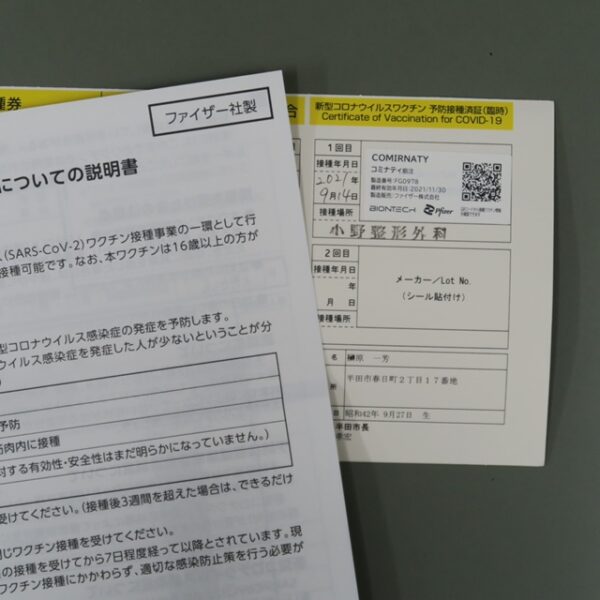 種券
ファイザー社製
についての説明書
(SARS-CoV-2)ワクチン接種事業の一環として行
接種可能です。なお、本ワクチンは16歳以上の方が
型コロナウイルス感染症の発症を予防します。
ウイルス感染症を発症した人が少ないということが分
予防
筋肉内に接種
対する有効性・安全性はまだ明らかになっていません。)
受けてください。(接種後3週間を超えた場合は、できるだけ
同じワクチン接種を受けてください。
の接種を受けてから7日程度経って以降とされています。現
ワクチン接種にかかわらず、適切な感染防止策を行う必要が
合
新型コロナウイルスワクチン 予防接種済証(臨時)
Certificate of Vaccination for COVID-19
1回目
接種年月日
2021年
9月14日
接種場所
小野整形外科
COMIRNATY
コミナティ筋注
製造番号:FG0978
最終有効年月日:2021/11/30
製造販売:ファイザー株式会社
BIONTECH Pfizer
2回目
接種年月日
年
月 日
接種場所
メーカー/Lot No.
(シール貼付け)
名 榊原 一芳
所 半田市春日町2丁目17番地
日 昭和42年 9月27日 生
半田市長